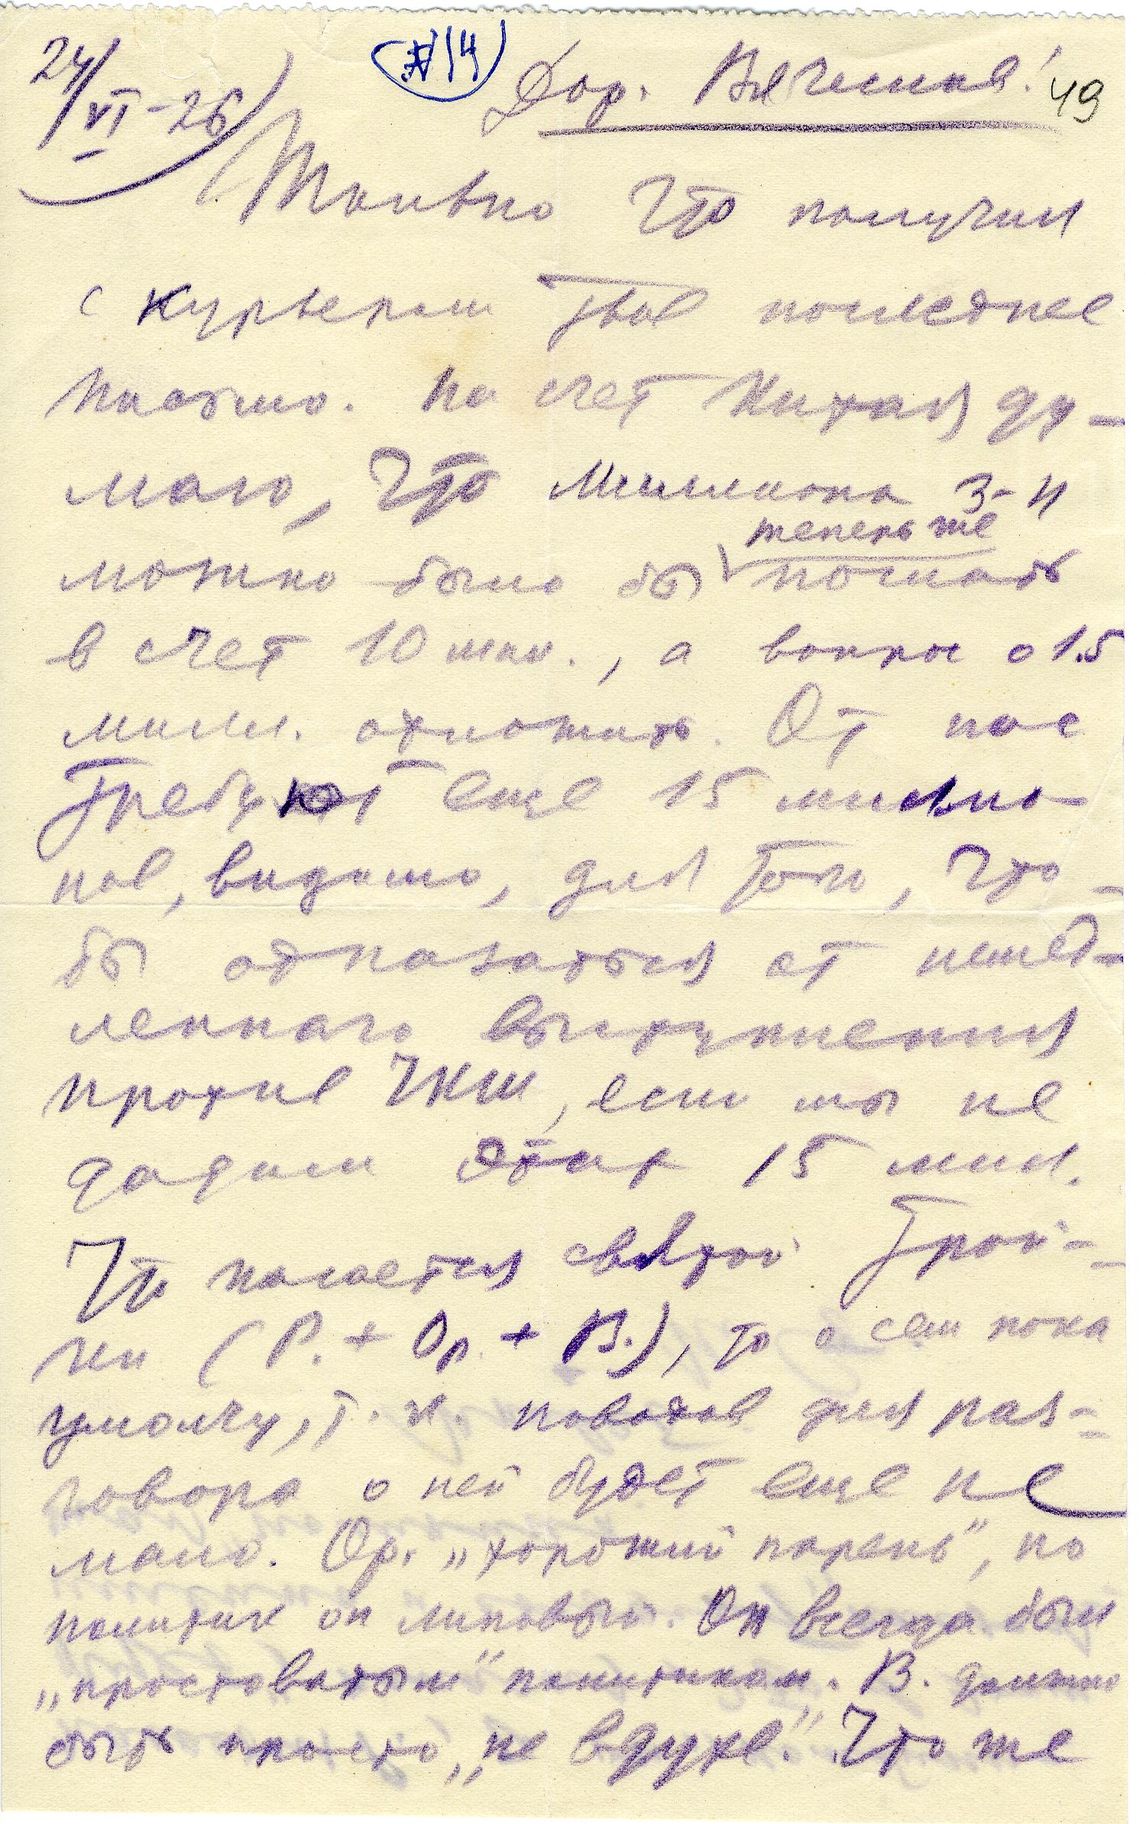 24/VI-26
14
Дор. Вячеслав!
49
Только что получил
с курьером твое последнее
письмо. На счет Китая ду-
маю, что миллиона 3-4
теперь же
можно было бы послать
в счет 10 мил., а вопрос о 15
милл. отложить. От нас
требуют еще 15 миллио-
нов, видимо, для того, что-
бы отказаться от немед-
ленного выступления
против Чкш, если мы не
дадим этих 15 милл.
Что касается святой трой-
ки (Р. + Ор. + В.), то о сем пока
умолчу, т.к. поводов для раз-
говора о ней будет еще не
мало. Ор. „хороший парень“, но
политик он липовый. Он всегда был
„простоватым“ политиком. В. должно
быть просто „не вдухе“. Что же